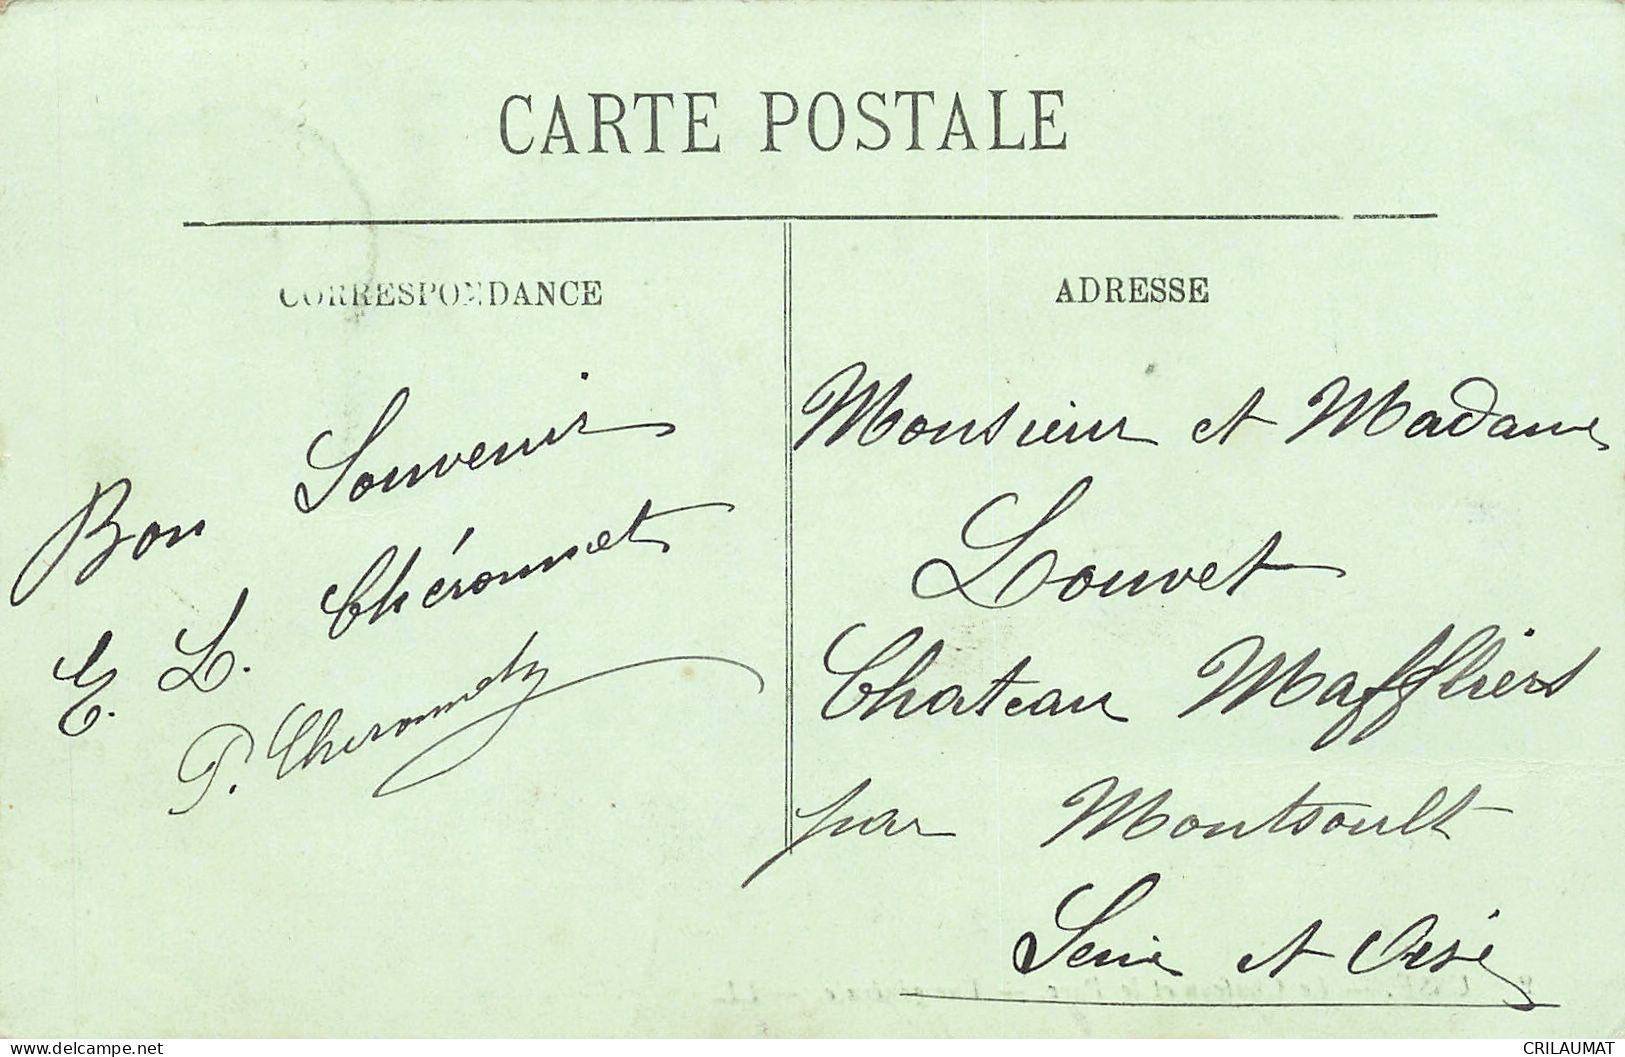 CARTE POSTALE
CORRESPONDANCE
Bon Souvenir
E. L. Chéronnet
P. Cheronnet
ADRESSE
Monsieur et Madame
Louvet
Chateau Maffliers
par Montsoult
Seine et Oise
www.delcampe.net
CRILAUMAT